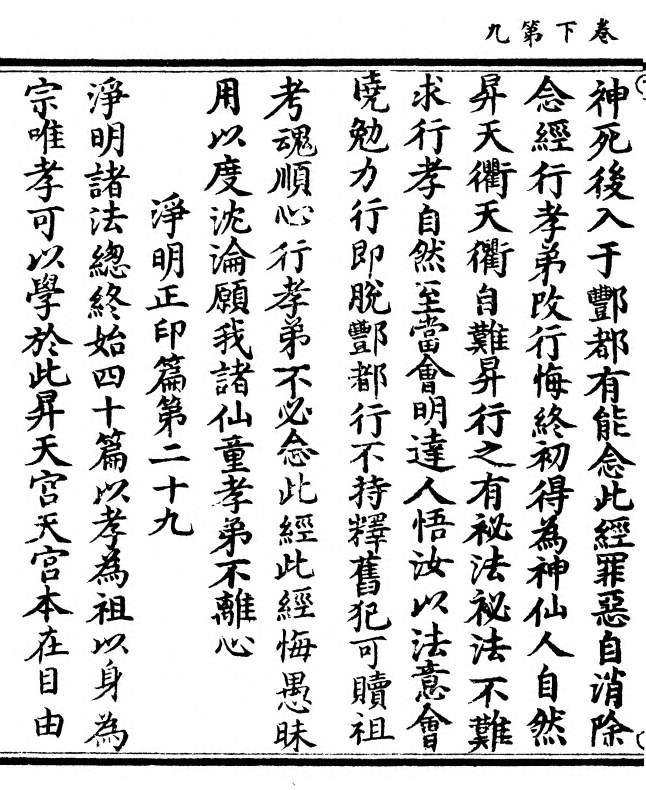 卷下第九
神死後入于酆都有能念此經罪惡自消除
念經行孝弟改行悔終初得為神仙人自然
昇天衢天衢自難昇行之有祕法祕法不難
求行孝自然至當會明達人悟汝以法意會
曉勉力行即脫酆都行不持釋舊犯可贖祖
考魂順心行孝弟不必念此經此經悔愚昧
用以度沈淪願我諸仙童孝弟不離心
淨明正印篇第二十九
淨明諸法總終始四十篇以孝為祖以身為
宗唯孝可以學於此昇天宮天宮本在目由